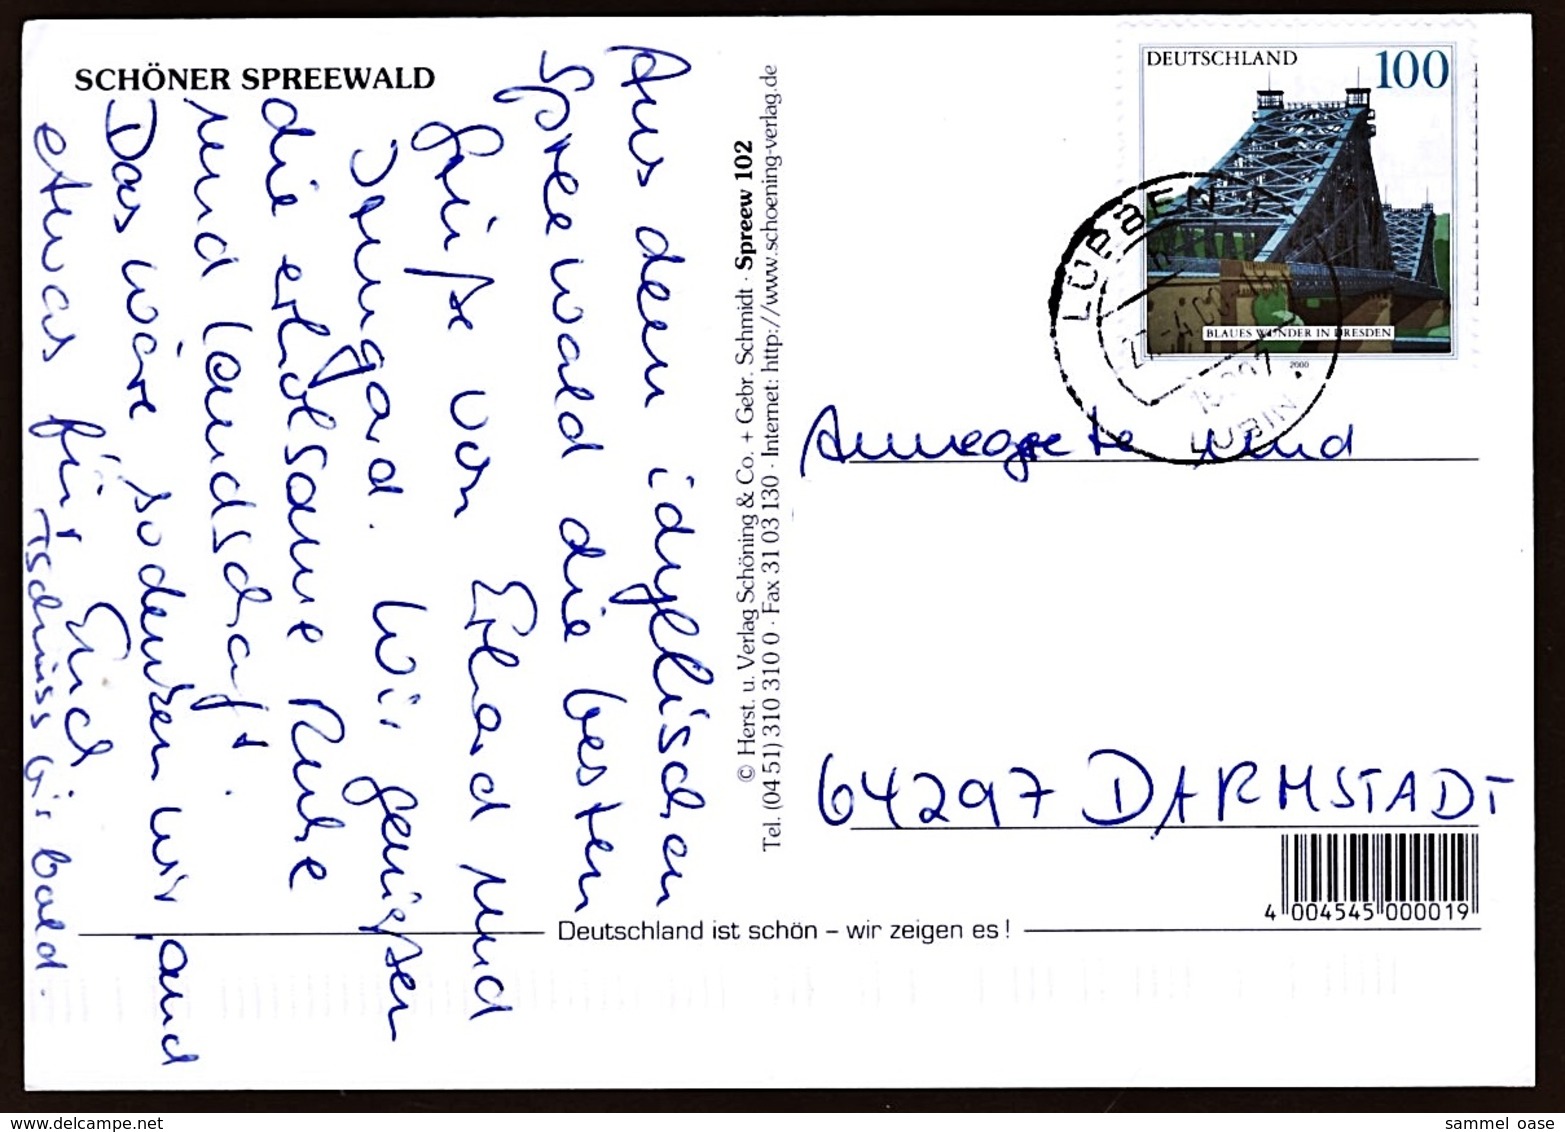 SCHÖNER SPREEWALD
Aus dem idyllischen
Spreewald die besten
Grüße von Erhard und
Irmgard. Wir genießen
die erholsame Ruhe
und Landschaft!
Das wäre, so denken wir, auch
etwas für Euch
Tschüss bis bald.
© Herst. u. Verlag Schöning & Co. + Gebr. Schmidt · Spreew 102
Tel. (04 51) 310 310 0 · Fax 31 03 130 · Internet: http://www.schoening-verlag.de
DEUTSCHLAND
100
BLAUES WUNDER IN DRESDEN
2000
LÜBBEN
LUBIN
Annegrete und
64297 DARMSTADT
4 004545 000019
Deutschland ist schön – wir zeigen es !
sammel oase